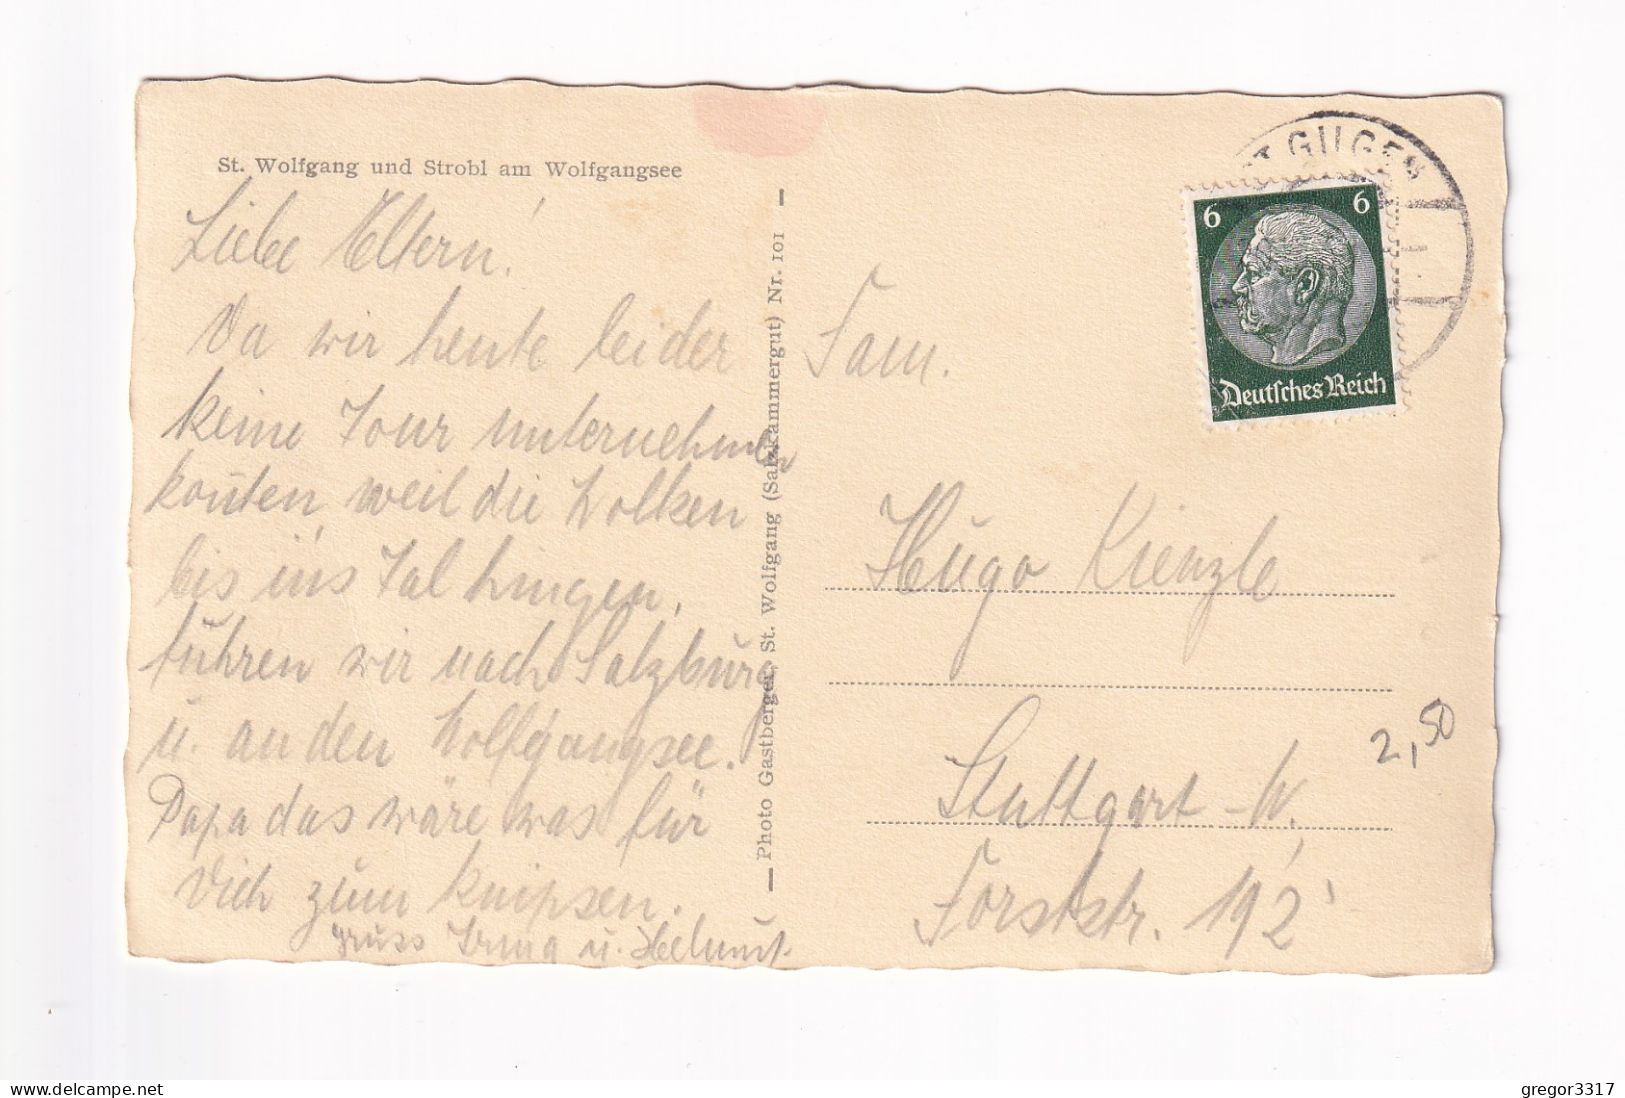 St. Wolfgang und Strobl am Wolfgangsee
Liebe Eltern!
Da wir heute leider
keine Tour unternehmen
konten, weil die Wolken
bis ins Tal hingen,
fuhren wir nach Salzburg
u. an den Wolfgangsee.
Papa das wäre was für
Dich zum knipsen.
Gruss Irma u. Helmut.
— Photo Gastberger, St. Wolfgang (Salzkammergut) Nr. 101 —
ST. GILGEN
6 6
Deutsches Reich
Fam.
Hugo Kienzle
Stuttgart-W.
Forststr. 192
2,50
gregor3317